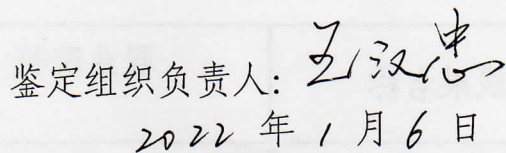 鉴定组织负责人: 王汉忠
2022 年 1 月 6 日